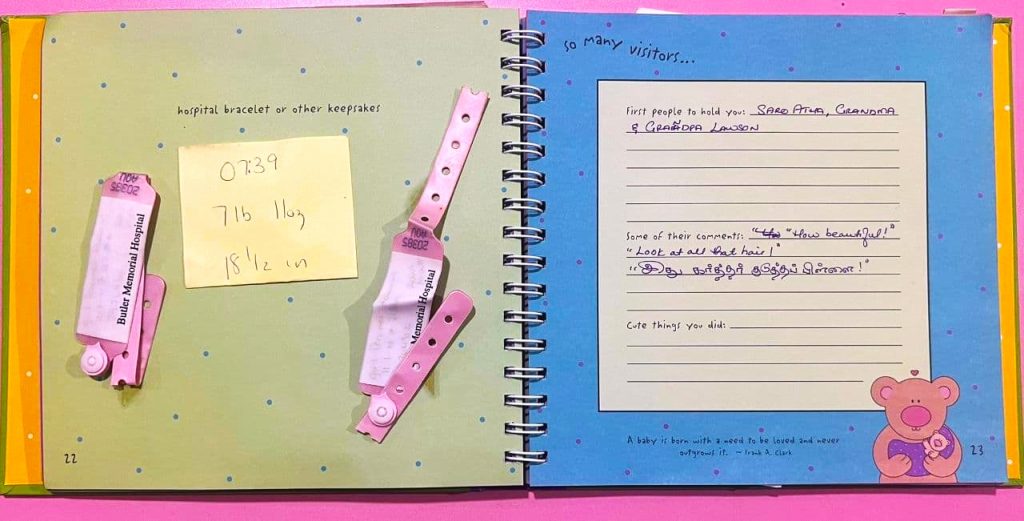 hospital bracelet or other keepsakes
07:39
7 lb 11oz
18 1/2 in
20385
Butler Memorial Hospital
20385
Memorial Hospital
22
so many visitors...
First people to hold you: SARO ATHA, GRANDMA
& GRANDPA LAWSON
Some of their comments: "How beautiful!"
"Look at all that hair!"
"இது கர்த்தர் குடுத்தப் பிள்ளை!"
Cute things you did:
A baby is born with a need to be loved and never
outgrows it. ~ Frank A. Clark
23